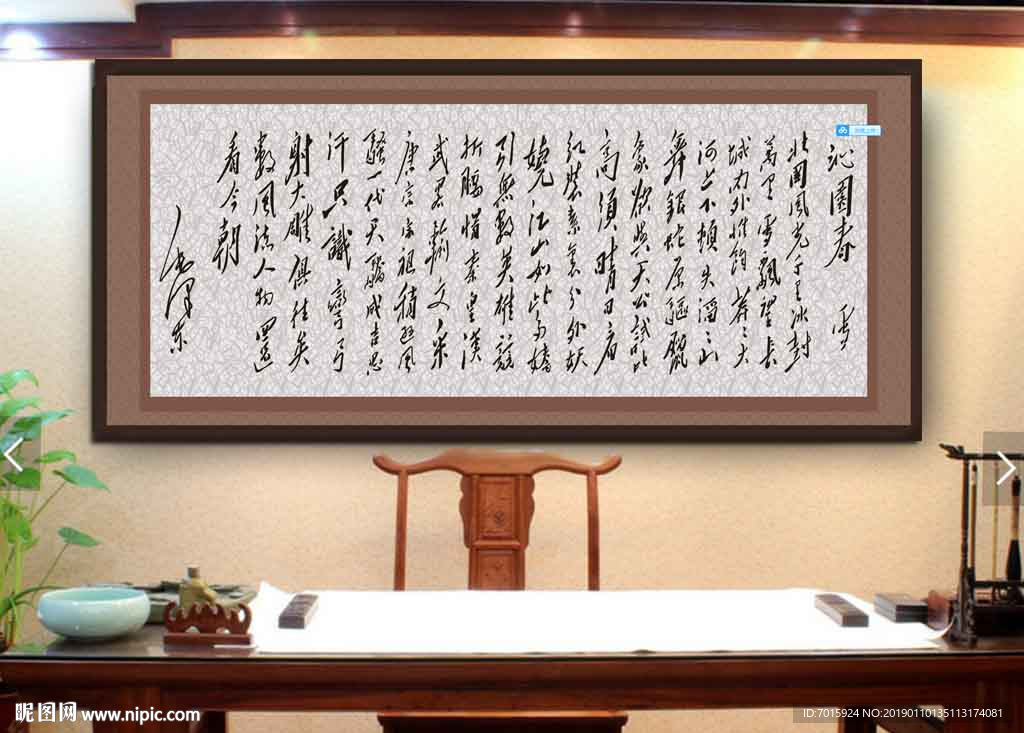 沁園春 雪
北國風光千里冰封
萬里雪飄望長
城内外惟餘莽々大
河上下頓失滔々山
舞銀蛇原驅蠟
象欲與天公試比
高須晴日看
紅裝素裹分外妖
嬈江山如此多嬌
引無數英雄競
折腰惜秦皇漢
武畧輸文采
唐宗宋祖稍遜風
騷一代天驕成吉思
汗只識彎弓
射大雕俱往矣
數風流人物還
看今朝
毛澤東
昵图网 www.nipic.com
ID:7015924 NO:20190110135113174081